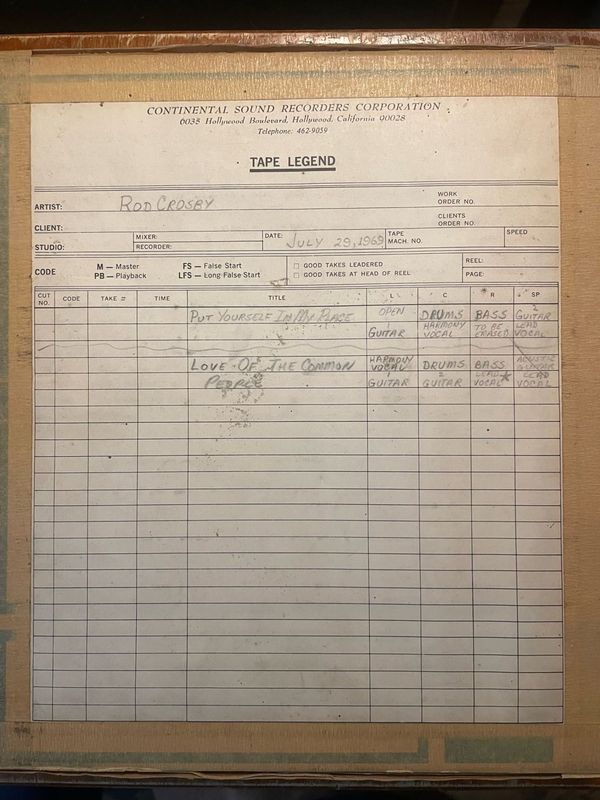 CONTINENTAL SOUND RECORDERS CORPORATION
6035 Hollywood Boulevard, Hollywood, California 90028
Telephone: 462-9059
TAPE LEGEND
ARTIST: ROD CROSBY WORK ORDER NO.
CLIENT: CLIENTS ORDER NO.
STUDIO: MIXER: RECORDER: DATE: JULY 29, 1969 TAPE MACH. NO. SPEED
CODE M — Master FS — False Start □ GOOD TAKES LEADERED REEL:
PB — Playback LFS — Long False Start □ GOOD TAKES AT HEAD OF REEL PAGE:
CUT NO. CODE TAKE # TIME TITLE L C R SP
PUT YOURSELF IN MY PLACE OPEN DRUMS BASS 2 GUITAR
GUITAR HARMONY VOCAL TO BE ERASED LEAD VOCAL
LOVE OF THE COMMON HARMONY VOCAL DRUMS BASS ACUSTIC GUITAR
PEOPLE 1 GUITAR 2 GUITAR LEAD * VOCAL LEAD VOCAL